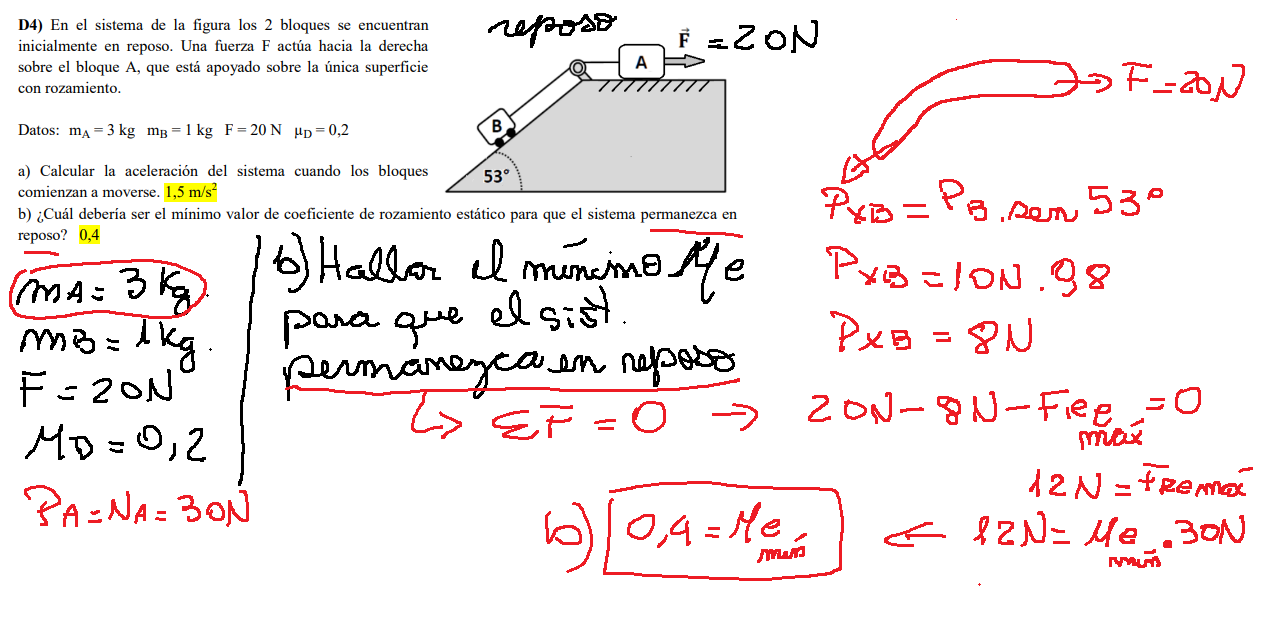 D4) En el sistema de la figura los 2 bloques se encuentran
inicialmente en reposo. Una fuerza F actúa hacia la derecha
sobre el bloque A, que está apoyado sobre la única superficie
con rozamiento.
Datos: mA = 3 kg mB = 1 kg F = 20 N μD = 0,2
a) Calcular la aceleración del sistema cuando los bloques
comienzan a moverse. 1,5 m/s²
b) ¿Cuál debería ser el mínimo valor de coeficiente de rozamiento estático para que el sistema permanezca en
reposo? 0,4
reposo
F⃗ = 20N
A
B
53°
F = 20N
PxB = PB . sen 53°
PxB = 10N . 98
PxB = 8N
mA = 3 kg.
mB = 1 kg.
F = 20N
MD = 0,2
PA = NA = 30N
b) Hallar el mínimo Me
para que el sist.
permanezca en reposo
↳ ΣF = 0 → 20N - 8N - Fre máx = 0
12N = Fre máx
12N = Me mín . 30N
←
b) 0,4 = Me mín